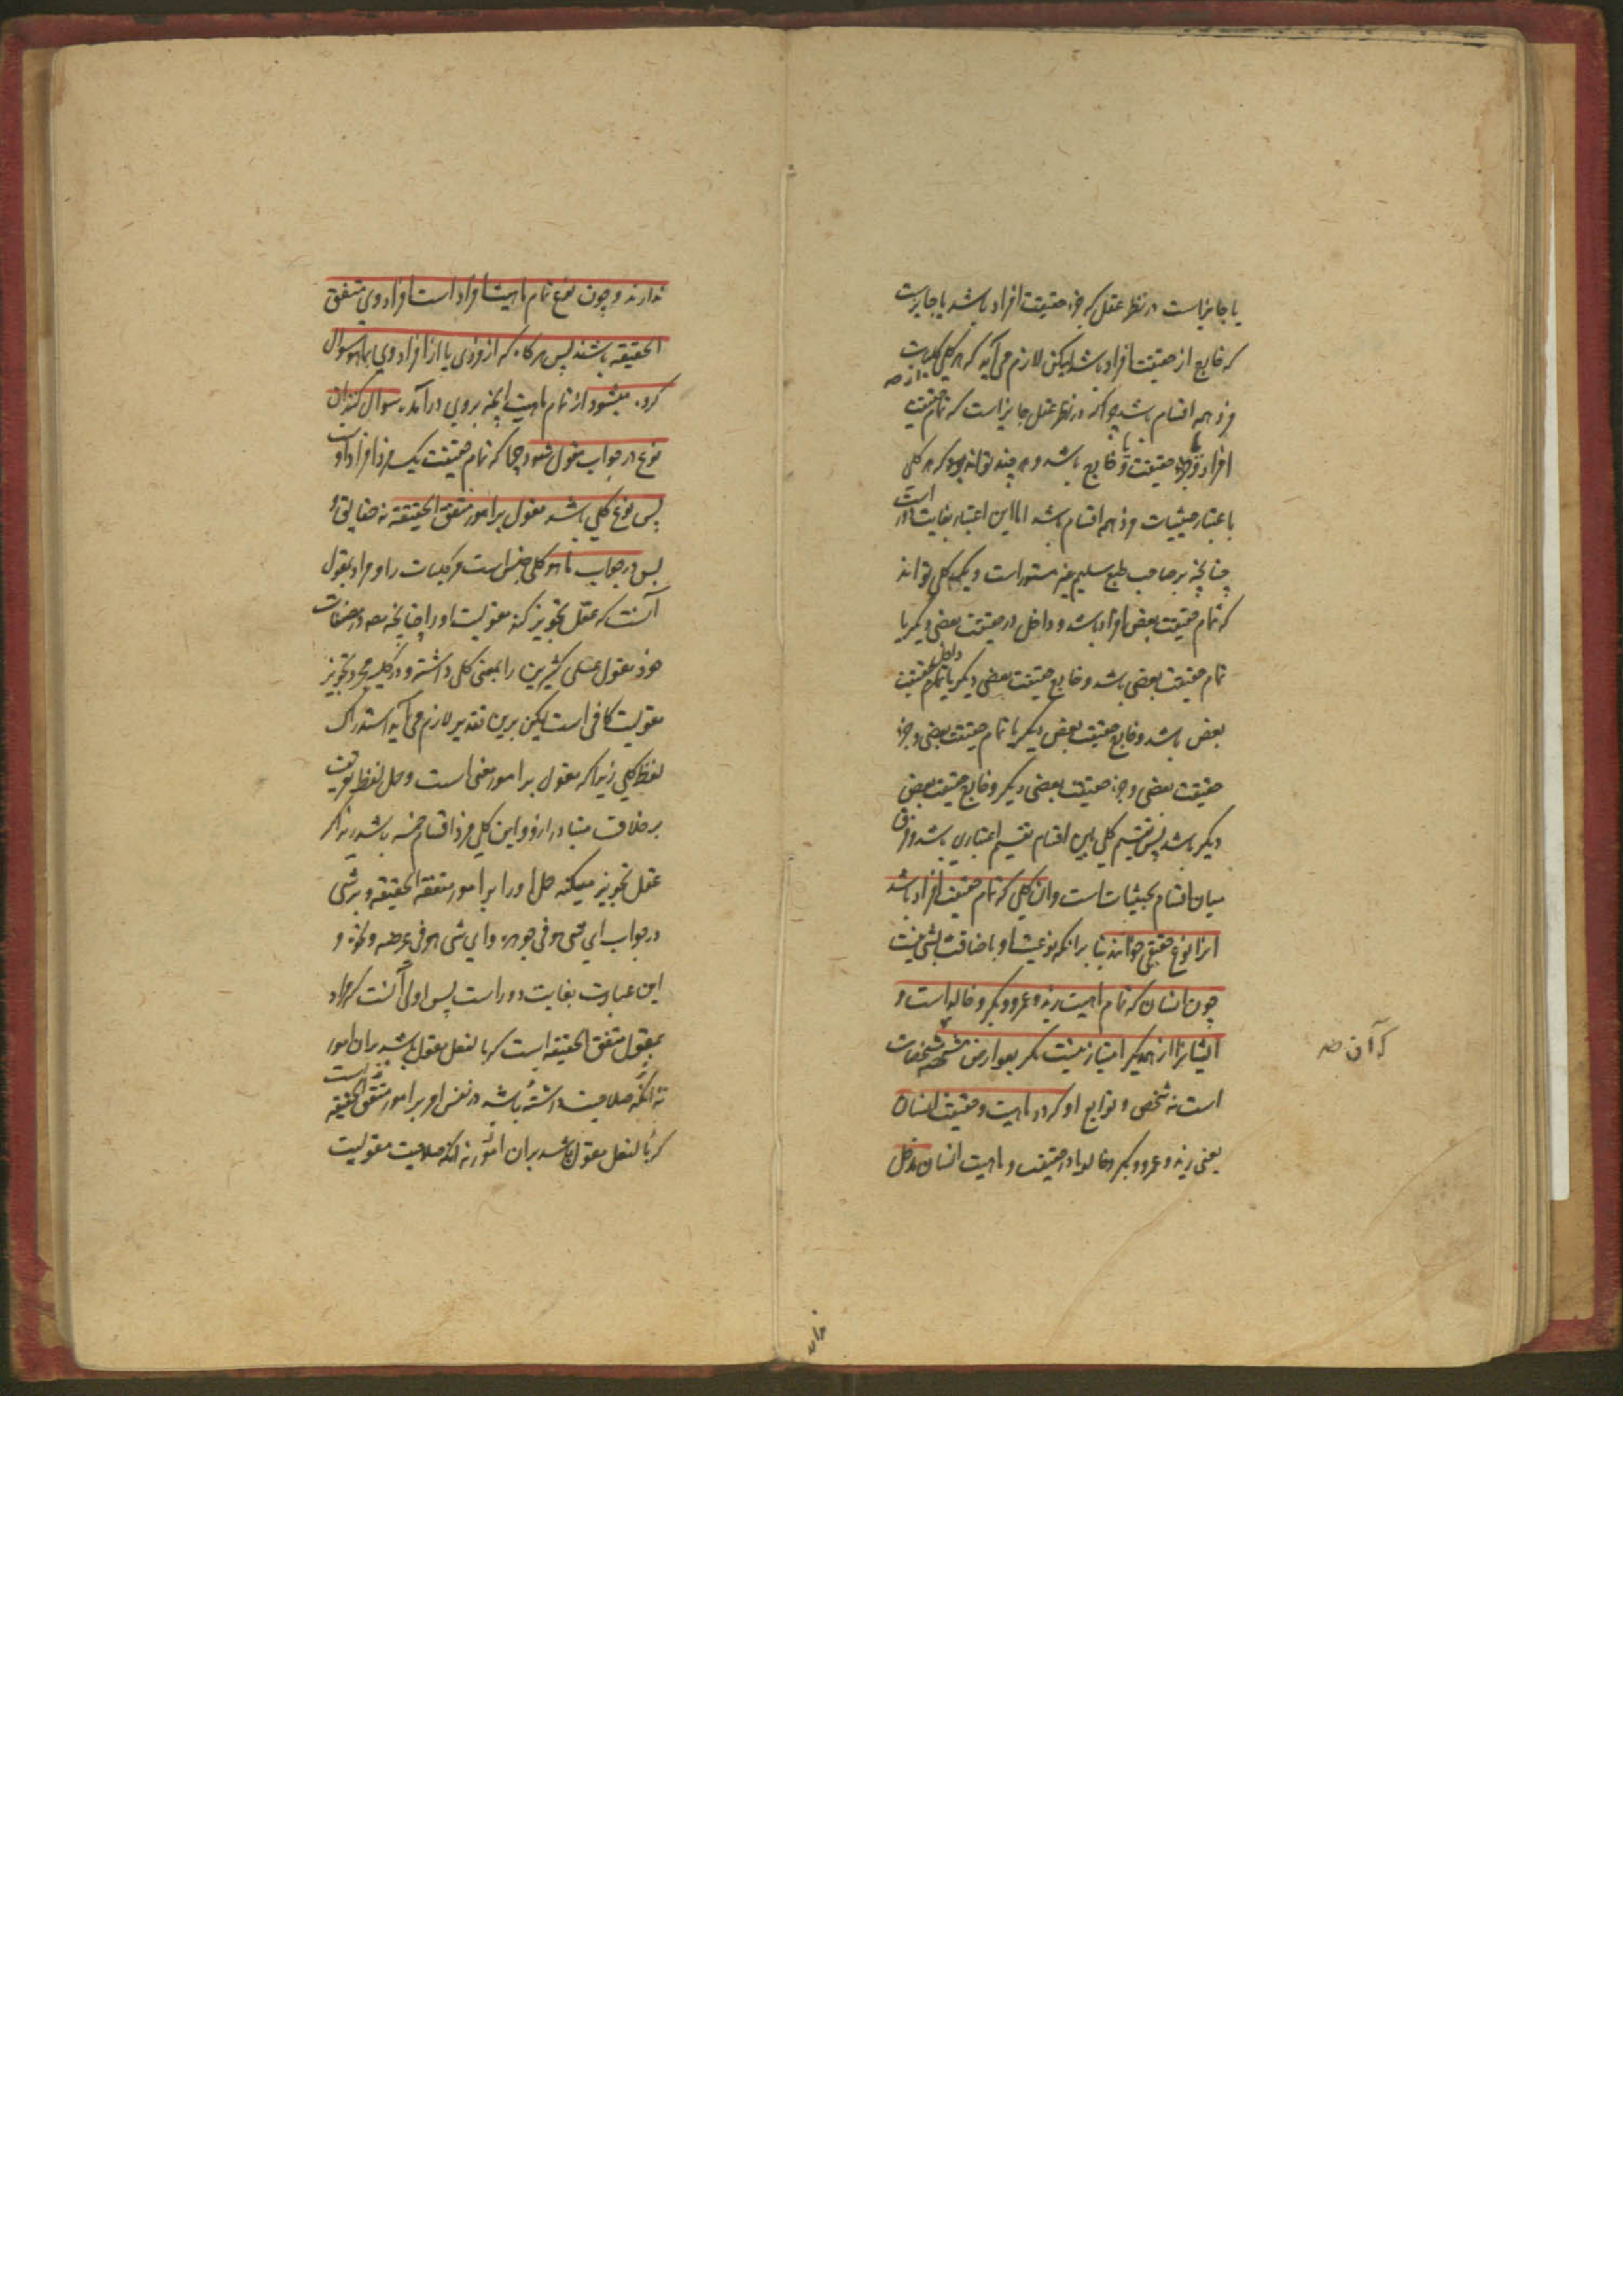 یا جایز است در نظر عقل که جزء حقیقت افراد باشد یا جایز است
که خارج از حقیقت افراد باشد لیکن لازم می آید که هر کلی
فرد همه اقسام باشد چرا که در نظر عقل جایز است که تمام حقیقت
افراد و جزء حقیقت و خارج باشد و هر چند تواند بود که هر کلی
باعتبار حیثیات فرد همه اقسام باشد اما این اعتبار بغایت دور است
چنانچه بر صاحب طبع سلیم غیر مستور است و یک کلی تواند
که تمام حقیقت بعض افراد باشد و داخل در حقیقت بعضی دیگر یا
تمام حقیقت بعضی باشد و خارج حقیقت بعضی دیگر یا داخل حقیقت
بعض باشد و خارج حقیقت بعض دیگر یا تمام حقیقت بعضی و جزء
حقیقت بعضی و جزء حقیقت بعضی دیگر و خارج حقیقت بعض
دیگر باشد پس تقسیم کلی باین اقسام تقسیم اعتباری باشد و فرق
میان اقسام بحیثیات است و ان کلی که تمام حقیقت افراد باشد
انرا نوع حقیقی خوانند بنا برانکه نوعیت او باضافت بشی نیست
چون انسان که تمام ماهیت زید و عمرو و بکر و خالد است و
ایشانرا از همدیگر امتیاز نیست مگر بعوارض مشخصه
که آن صح
است نه شخص و توابع او که در ماهیت و حقیقت انسان
یعنی زید و عمرو و بکر و خالد یا در حقیقت و ماهیت انسان مدخل
ندارند و چون نوع تمام ماهیت افراد است افراد وی متفق
الحقیقه باشند پس هر گاه که از فردی یا از افراد وی بما هو سوال
کرده میشود از تمام ماهیت انچه بروی درآمده سوال کنند ان
نوع در جواب مقول شود چرا که تمام حقیقت یک فرد افراد اوست
پس نوع کلی باشد مقول بر امور متفقة الحقیقة
پس در جواب ما هو کلی جنس است مر کلیات را و مراد بمقول
آنست که عقل تجویز کند مقولیت او را چنانچه مصه در مصنفات
خود مقول علی کثیرین را بمعنی کلی داشته و در کلیه مجرد تجویز
مقولیت کافی است لیکن برین تقدیر لازم می آید استدراک
لفظ کلی زیرا که مقول بر امور مغنی است و حمل لفظ تعریف
بر خلاف متبادر ازو و این کلی فرد اقسام خمسه باشد زیرا که
عقل تجویز میکند حمل او را بر امور متفقة الحقیقه و بر شی
در جواب ای شی هو فی جوهره و ای شی هو فی عرضه و نحوه و
این عبارت بغایت دور است پس اولی آنست که مراد
بمقول متفق الحقیقه است که بالفعل مقول باشد بران امور
نه آنکه صلاحیت داشته باشد در نفس امر بر امور متفق الحقیقه
که بالفعل مقول باشد بران امور نه آنکه صلاحیت مقولیت